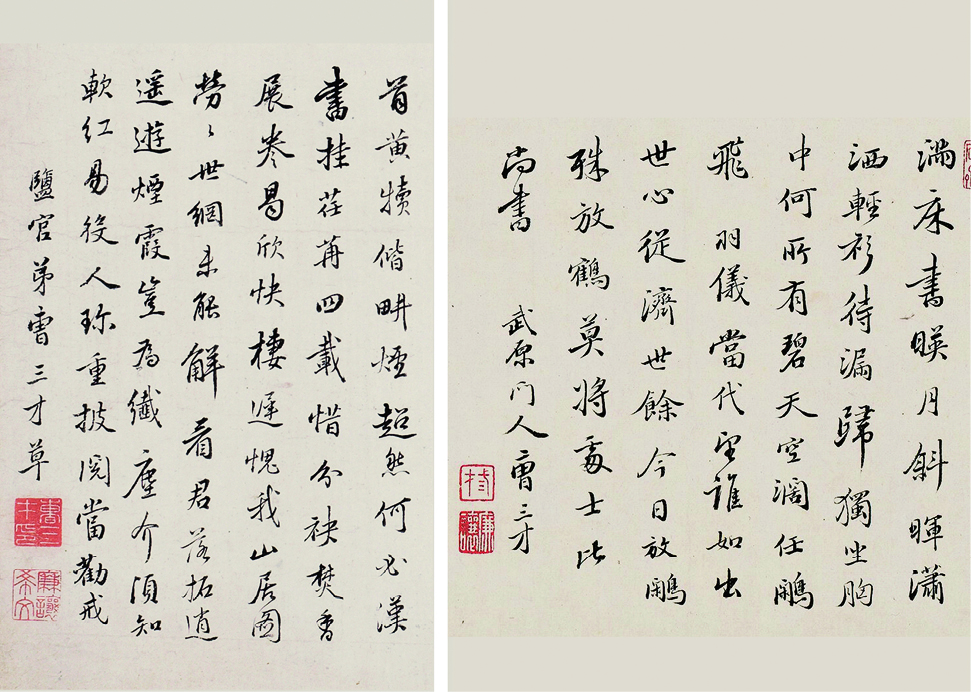 滿床書暎月斜暉瀟
洒輕衫待漏歸獨坐胸
中何所有碧天空濶任鵰
飛 羽儀當代望誰如出
世心從濟世餘今日放鵰
殊放鶴莫將處士比
尚書 武原門人曹三才
首黄犢偕畊煙超然何必漢
書挂荏苒四載惜分袂焚香
展卷曷欣快棲遲愧我山居圖
勞〻世網未能解看君落拓逍
遥遊煙霞豈為纖塵介須知
軟紅易役人珎重披閲當勸戒
鹽官弟曹三才草